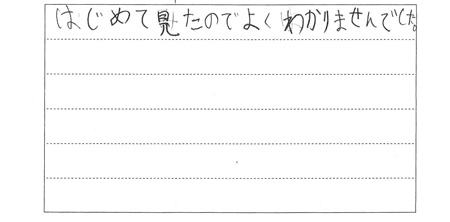 はじめて見たのでよくわかりませんでした。